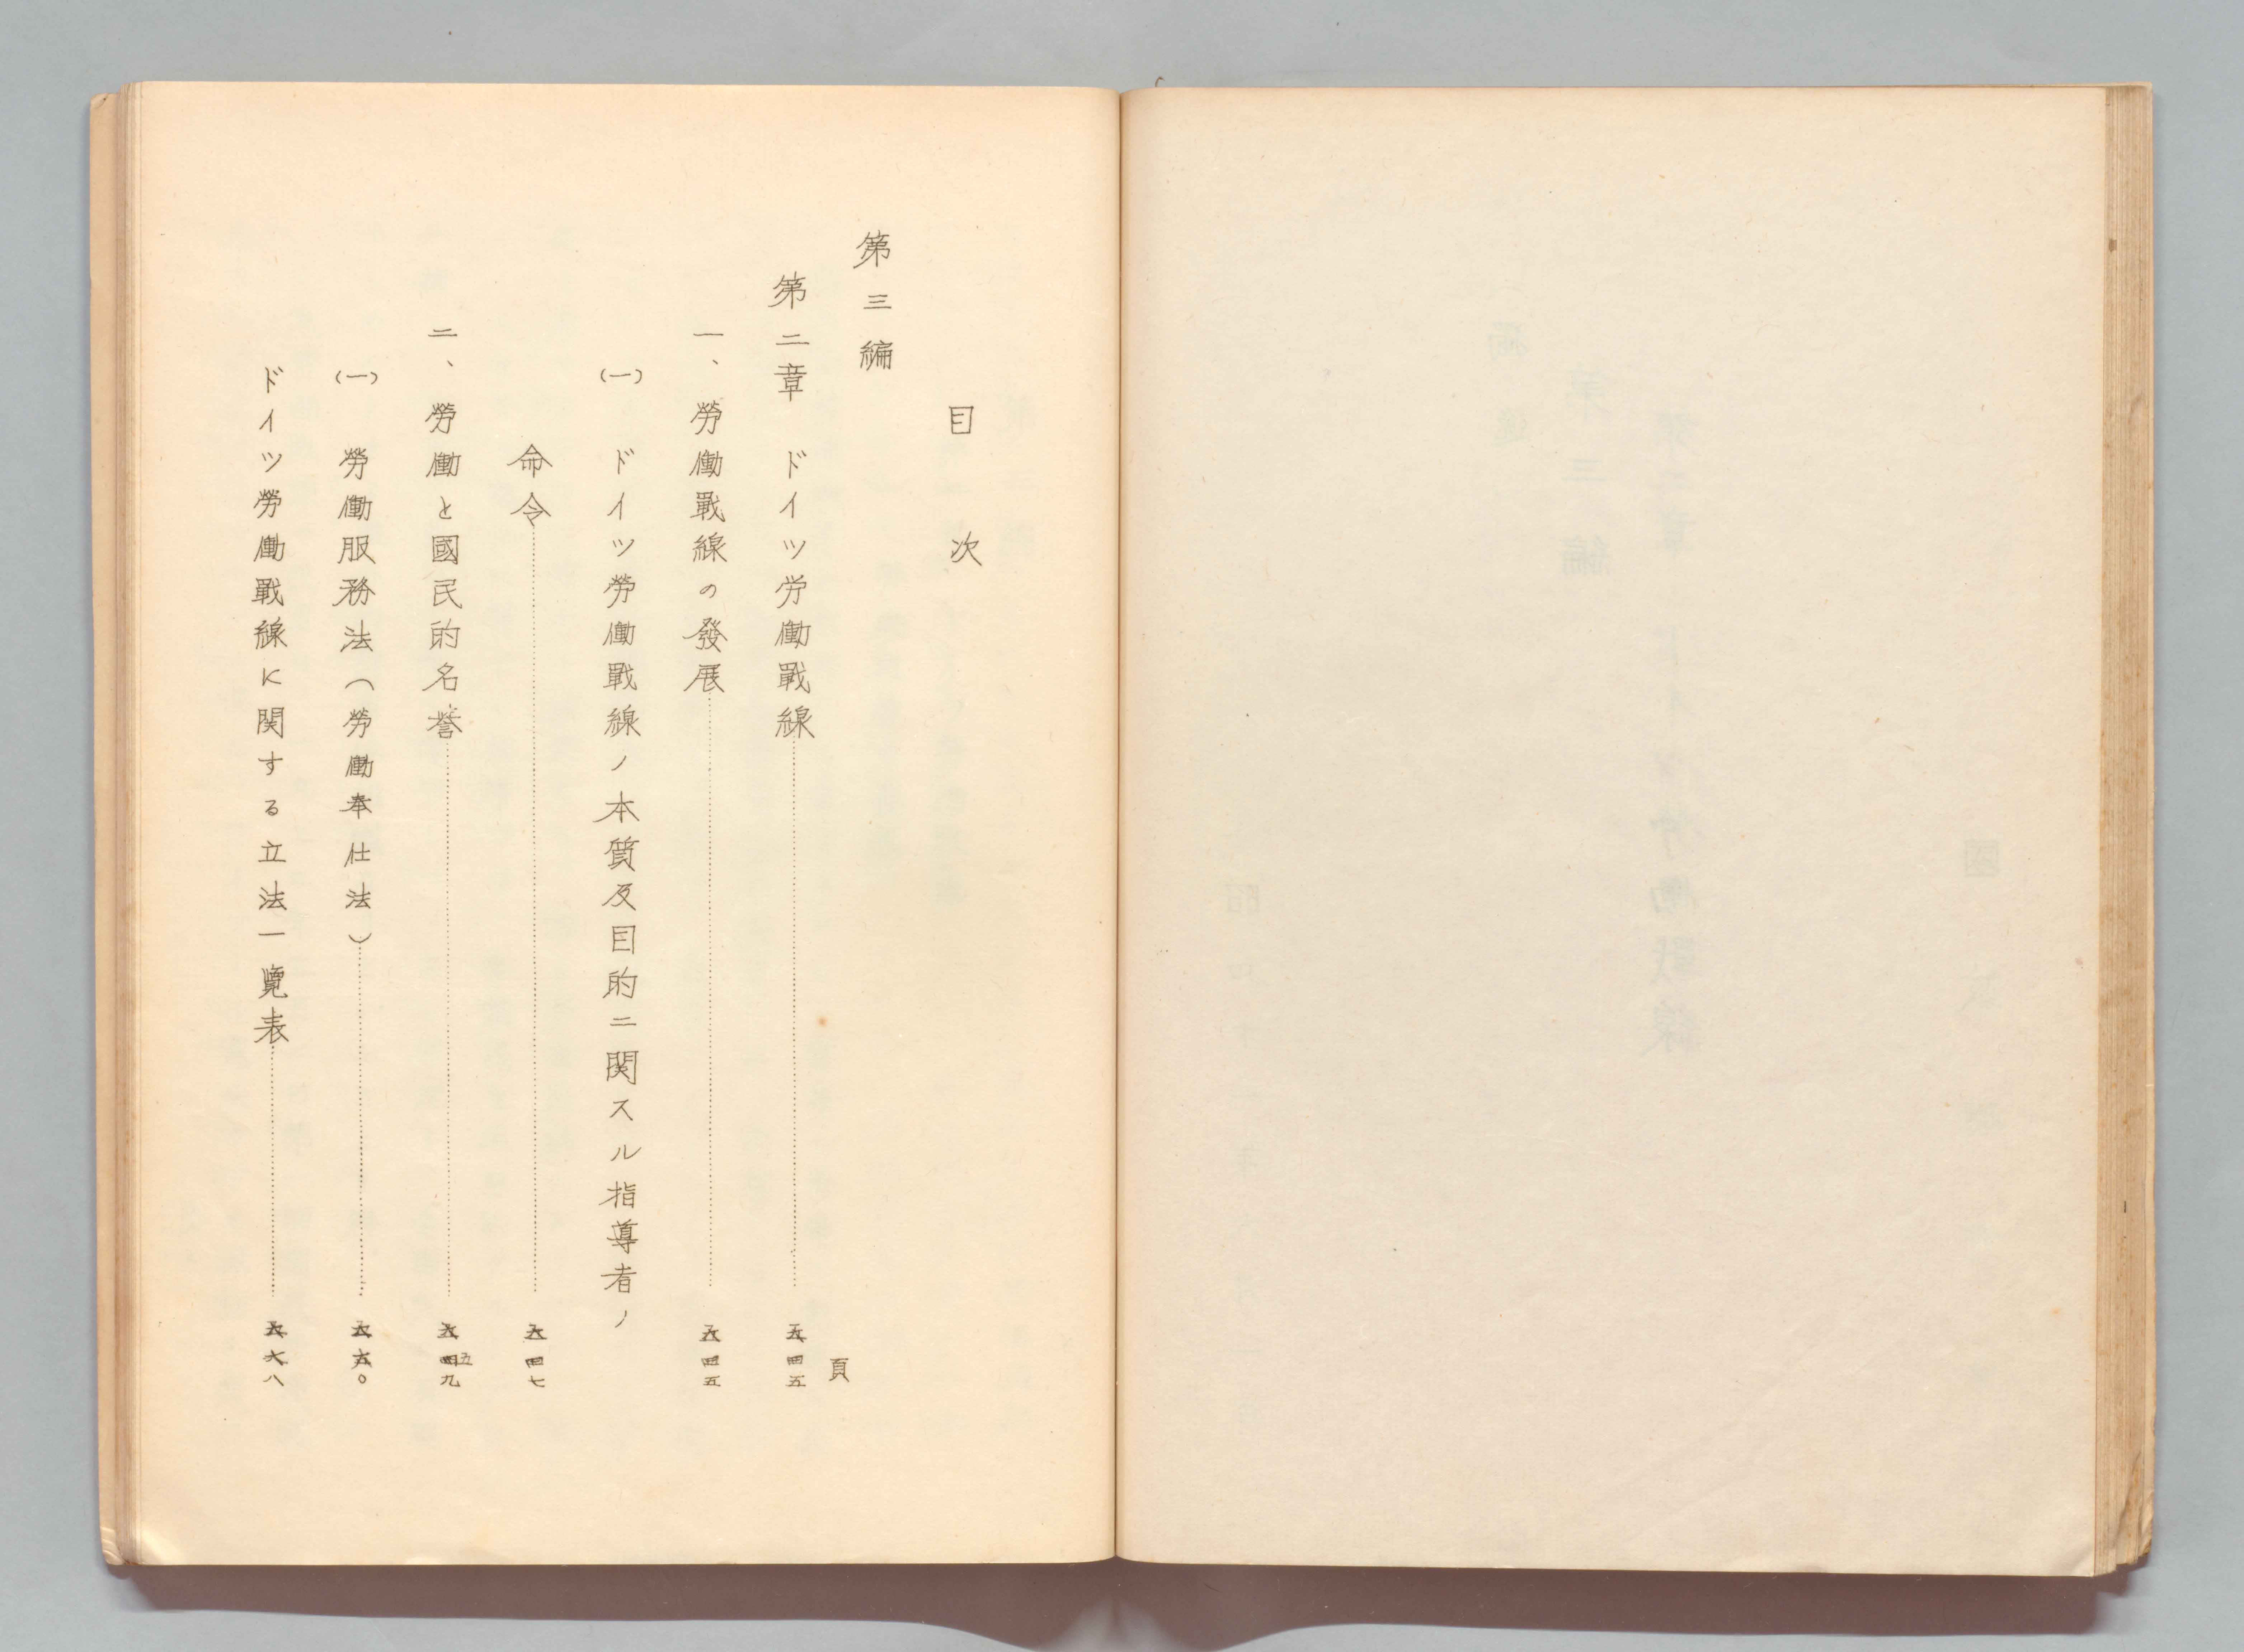 目次
第三編
頁
第二章 ドイツ労働戰線……五四五
一、勞働戰線の發展……五四五
(一) ドイツ勞働戰線ノ本質及目的ニ関スル指導者ノ
命令……五四七
二、勞働と國民的名誉……五五九
(一) 勞働服務法（勞働奉仕法）……五六〇
ドイツ勞働戰線に関する立法一覽表……五六八